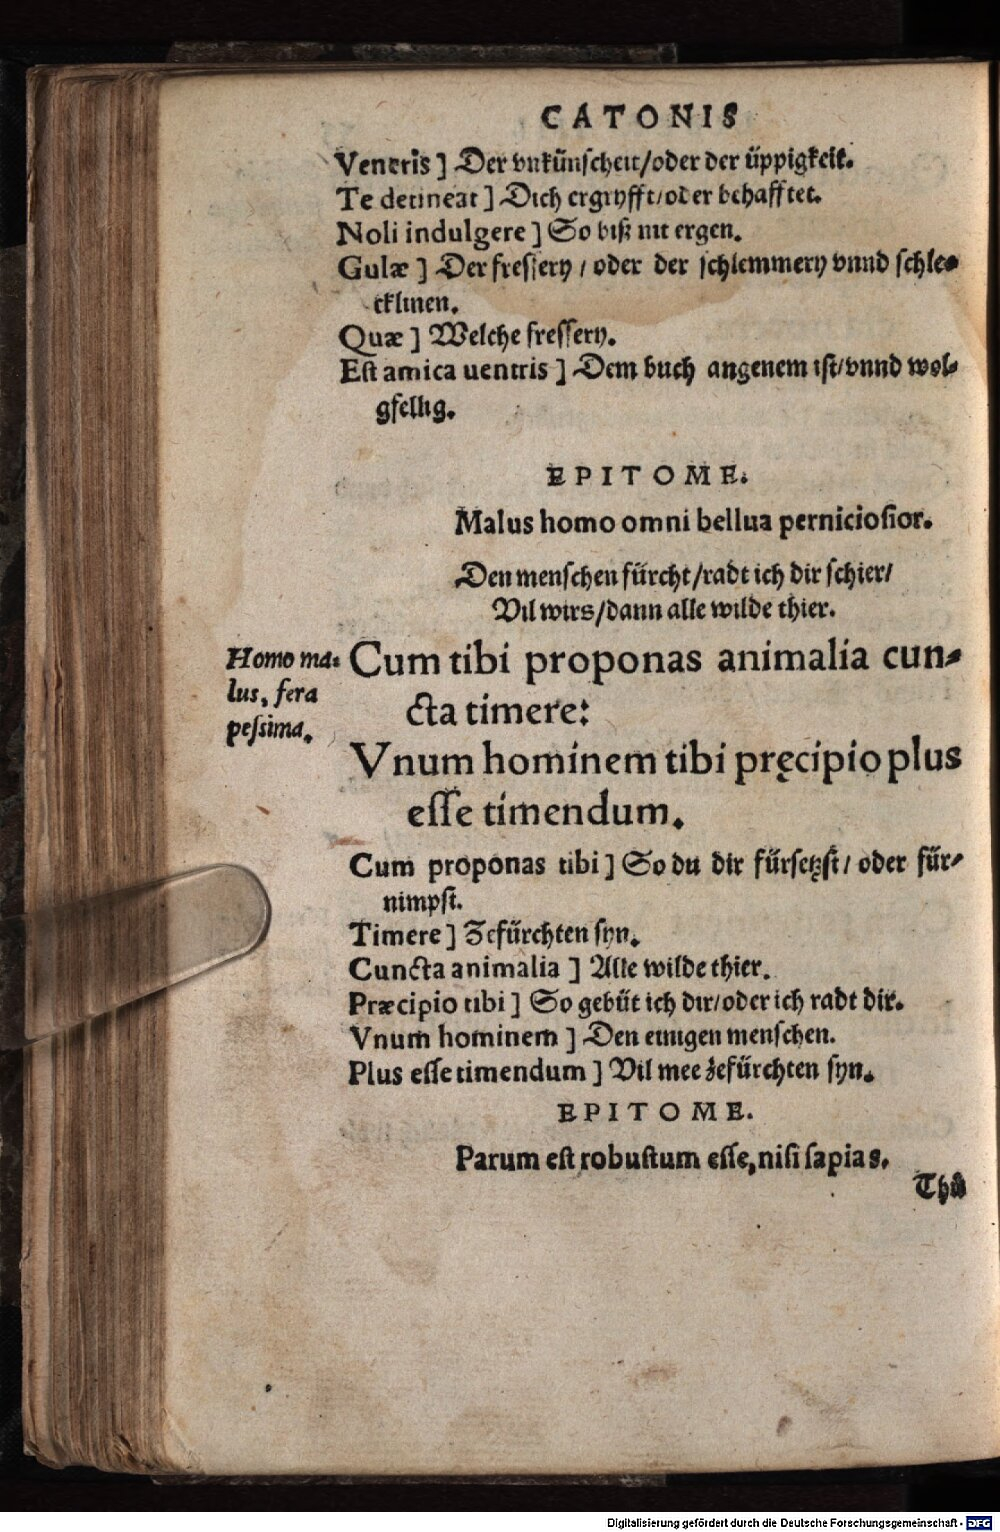 CATONIS
Veneris] Der vnkünscheit/oder der üppigkeit.
Te detineat] Dich ergryfft/oder behafftet.
Noli indulgere] So biß nit ergen.
Gulæ] Der fressery/ oder der schlemmery vnnd schle-
cklinen.
Quæ] Welche fressery.
Est amica uentris] Dem buch angenem ist/vnnd wol-
gfellig.
EPITOME.
Malus homo omni bellua perniciosior.
Den menschen fürcht/radt ich dir schier/
Vil wirs/dann alle wilde thier.
Homo ma-
lus, fera
pessima.
Cum tibi proponas animalia cun-
cta timere:
Vnum hominem tibi pręcipio plus
esse timendum.
Cum proponas tibi] So du dir fürsetzst/ oder für-
nimpst.
Timere] Zefürchten syn.
Cuncta animalia] Alle wilde thier.
Præcipio tibi] So gebüt ich dir/oder ich radt dir.
Vnum hominem] Den einigen menschen.
Plus esse timendum] Vil mee zefürchten syn.
EPITOME.
Parum est robustum esse, nisi sapias.
Thů
Digitalisierung gefördert durch die Deutsche Forschungsgemeinschaft - DFG